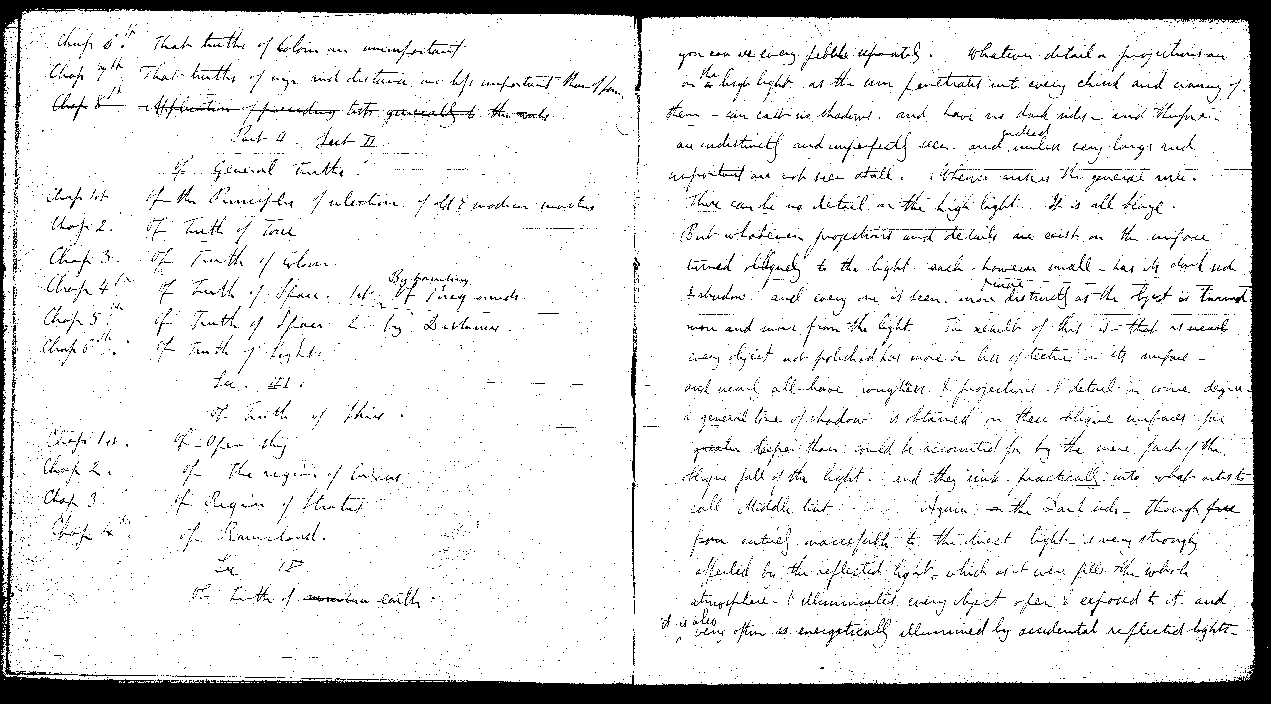 Chap 6th. That truths of Colour are unimportant
Chap 7th That truths of are less important than
Chap 8th Application of preceding tests generally to the
Part II. Sect II.
Of General Truths.
Chap 1st. Of the Principles of selection of old & modern masters
Chap 2. Of Truth of Tone
Chap 3. Of Truth of Colour.
By
Chap 4th Of Truth of Space. 1st. Of
Chap 5th Of Truth of Space 2. by Distance.
Chap 6th. Of Truth of Light.
Sec. III.
Of Truth of Skies.
Chap 1st. Of Open sky
Chap 2. Of the region of Cirrus
Chap 3. Of Region of Stratus
Chap 4th Of Raincloud.
Sec
Of Truth of earth.
you can see every pebble separately. Whatever detail or projections are
on the high light, as the sun penetrates into every chink and cranny of
them - can cast no shadows. and have no dark sides - and therefore
are indistinctly and imperfectly seen. and indeed unless very large and
important are not seen at all. the general rule.
There can be no detail on the high light. It is all blaze.
But whatever projections and details exist on the surface
turned obliquely to the light. each - however small - has its dark side
& shadow. and every one is seen. more distinctly as the object is turned
more and more from the light. The result of this is - that as nearly
every object not polished has more or less of texture on its surface -
and nearly all have roughness & projections & detail in some degree
a general line of shadow is obtained on these oblique surfaces far
greater deeper than could be accounted for by the mere fact of the
oblique fall of the light. and they sink practically into what artists
call Middle tint. Again. on the Dark side - though
from entirely inaccessible to the direct light - is very strongly
affected by the reflected light - which as it were fills the whole
atmosphere - & illuminates every object open & exposed to it. and
it is also
very often as energetically illumined by accidental reflected lights -